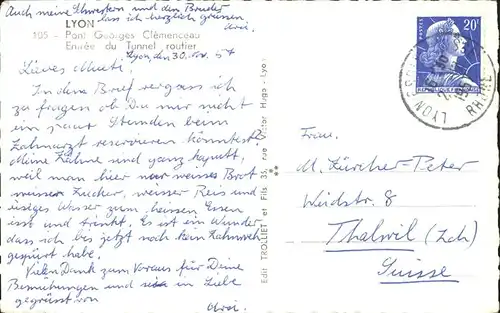 Auch meine Schwestern und den Bruder
lass ich herzlich grüssen,
LYON
105 – Pont Georges Clémenceau
Entrée du Tunnel routier
Lyon, den 30. Nov. 57
Liebes Mutti,
In dem Brief vergass ich
zu fragen ob Du mir nicht
ein paar Stunden beim
Zahnarzt reservieren könntest.
Meine Zähne sind ganz kaputt,
weil man hier nur weisses Brot
weisser Zucker, weisser Reis und
eisiges Wasser zum heissen Essen
isst und trinkt. Es ist ein Wunder
dass ich bis jetzt noch kein Zahnweh
gespürt habe.
Vielen Dank zum Voraus für Deine
Bemühungen und sei in Liebe
gegrüsst von
Edit. TROLLIET et Fils 35, rue Victor Hugo - Lyon
POSTES
20F
LYON
RHONE
Frau.
M. Zürcher-Peter
Weidstr. 8
Thalwil (Zch)
Suisse